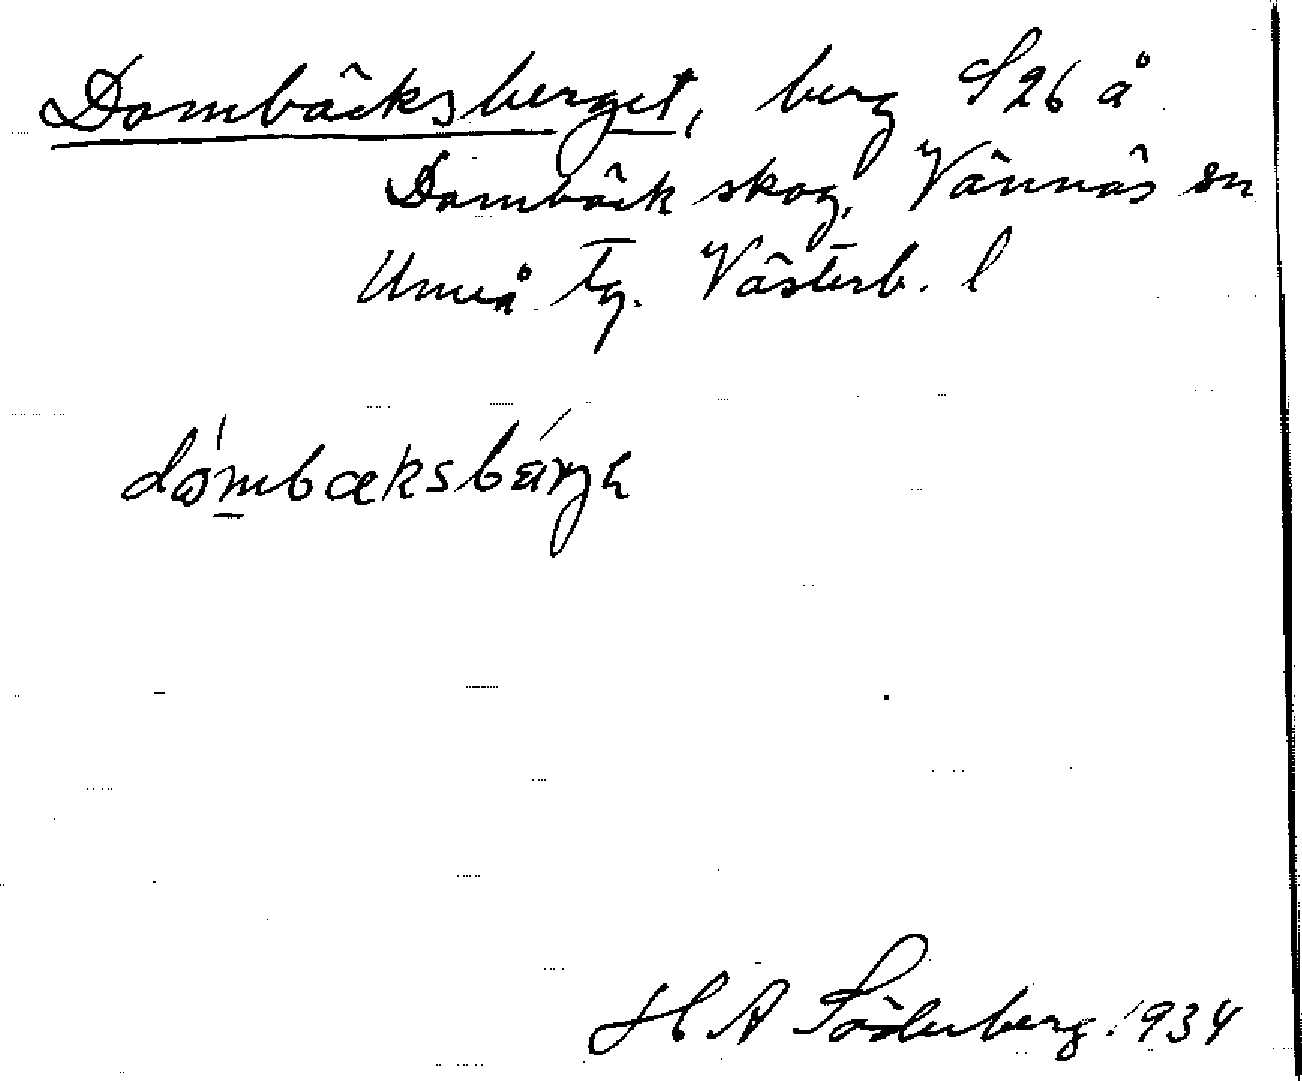 Dombäcksberget, berg S26 å
Dombäck skog, Vännäs sn
Umeå Tg. Västerb. l
H A Söderberg 1934